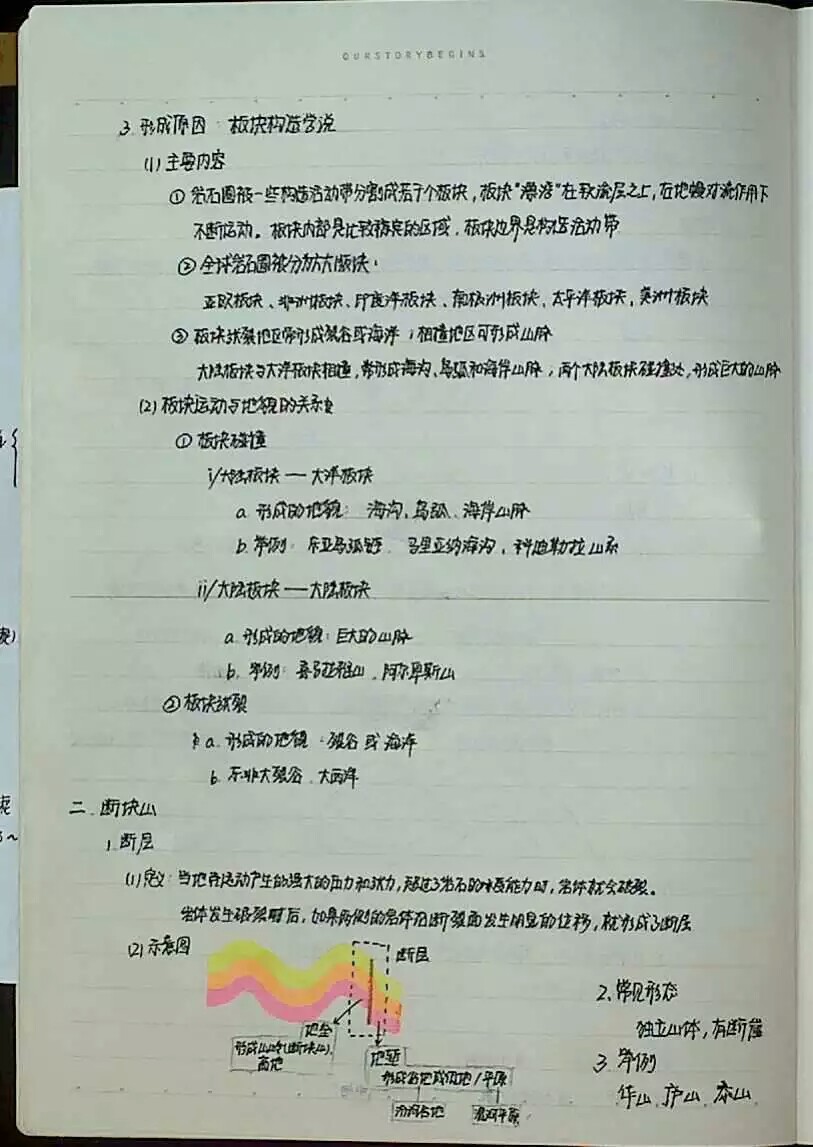 OURSTORYBEGINS
3. 形成原因：板块构造学说
(1) 主要内容
① 岩石圈被一些构造活动带分割成若干个板块，板块“漂浮”在软流层之上，在地幔对流作用下
不断运动。板块内部是比较稳定的区域，板块边界是构造活动带
② 全球岩石圈被分为六大版块：
亚欧板块、非洲板块、印度洋板块、南极洲板块、太平洋板块，美洲板块
③ 板块张裂地区常形成裂谷或海洋；相撞地区可形成山脉
大陆板块与大洋板块相撞，常形成海沟、岛弧和海岸山脉；两个大陆板块碰撞处，形成巨大的山脉
(2) 板块运动与地貌的关系
① 板块碰撞
i/大陆板块——大洋板块
a. 形成的地貌：海沟、岛弧、海岸山脉
b. 举例：东亚岛弧链、马里亚纳海沟，科迪勒拉山系
ii/大陆板块——大陆板块
a. 形成的地貌：巨大的山脉
b. 举例：喜马拉雅山、阿尔卑斯山
② 板块张裂
a. 形成的地貌：裂谷或海洋
b. 东非大裂谷、大西洋
二、断块山
1. 断层
(1) 定义：当地壳运动产生的强大的压力和张力，超过了岩石的承受能力时，岩体就会破裂。
岩体发生破裂时后，如果两侧的岩体沿断裂面发生明显的位移，就形成了断层
(2) 示意图
断层
地垒
形成山岭(断块山)、
高地
地堑
形成谷地或低地/平原
汾河谷地
渭河平原
2. 常见形态
独立山体，有断崖
3. 举例
华山、庐山、泰山